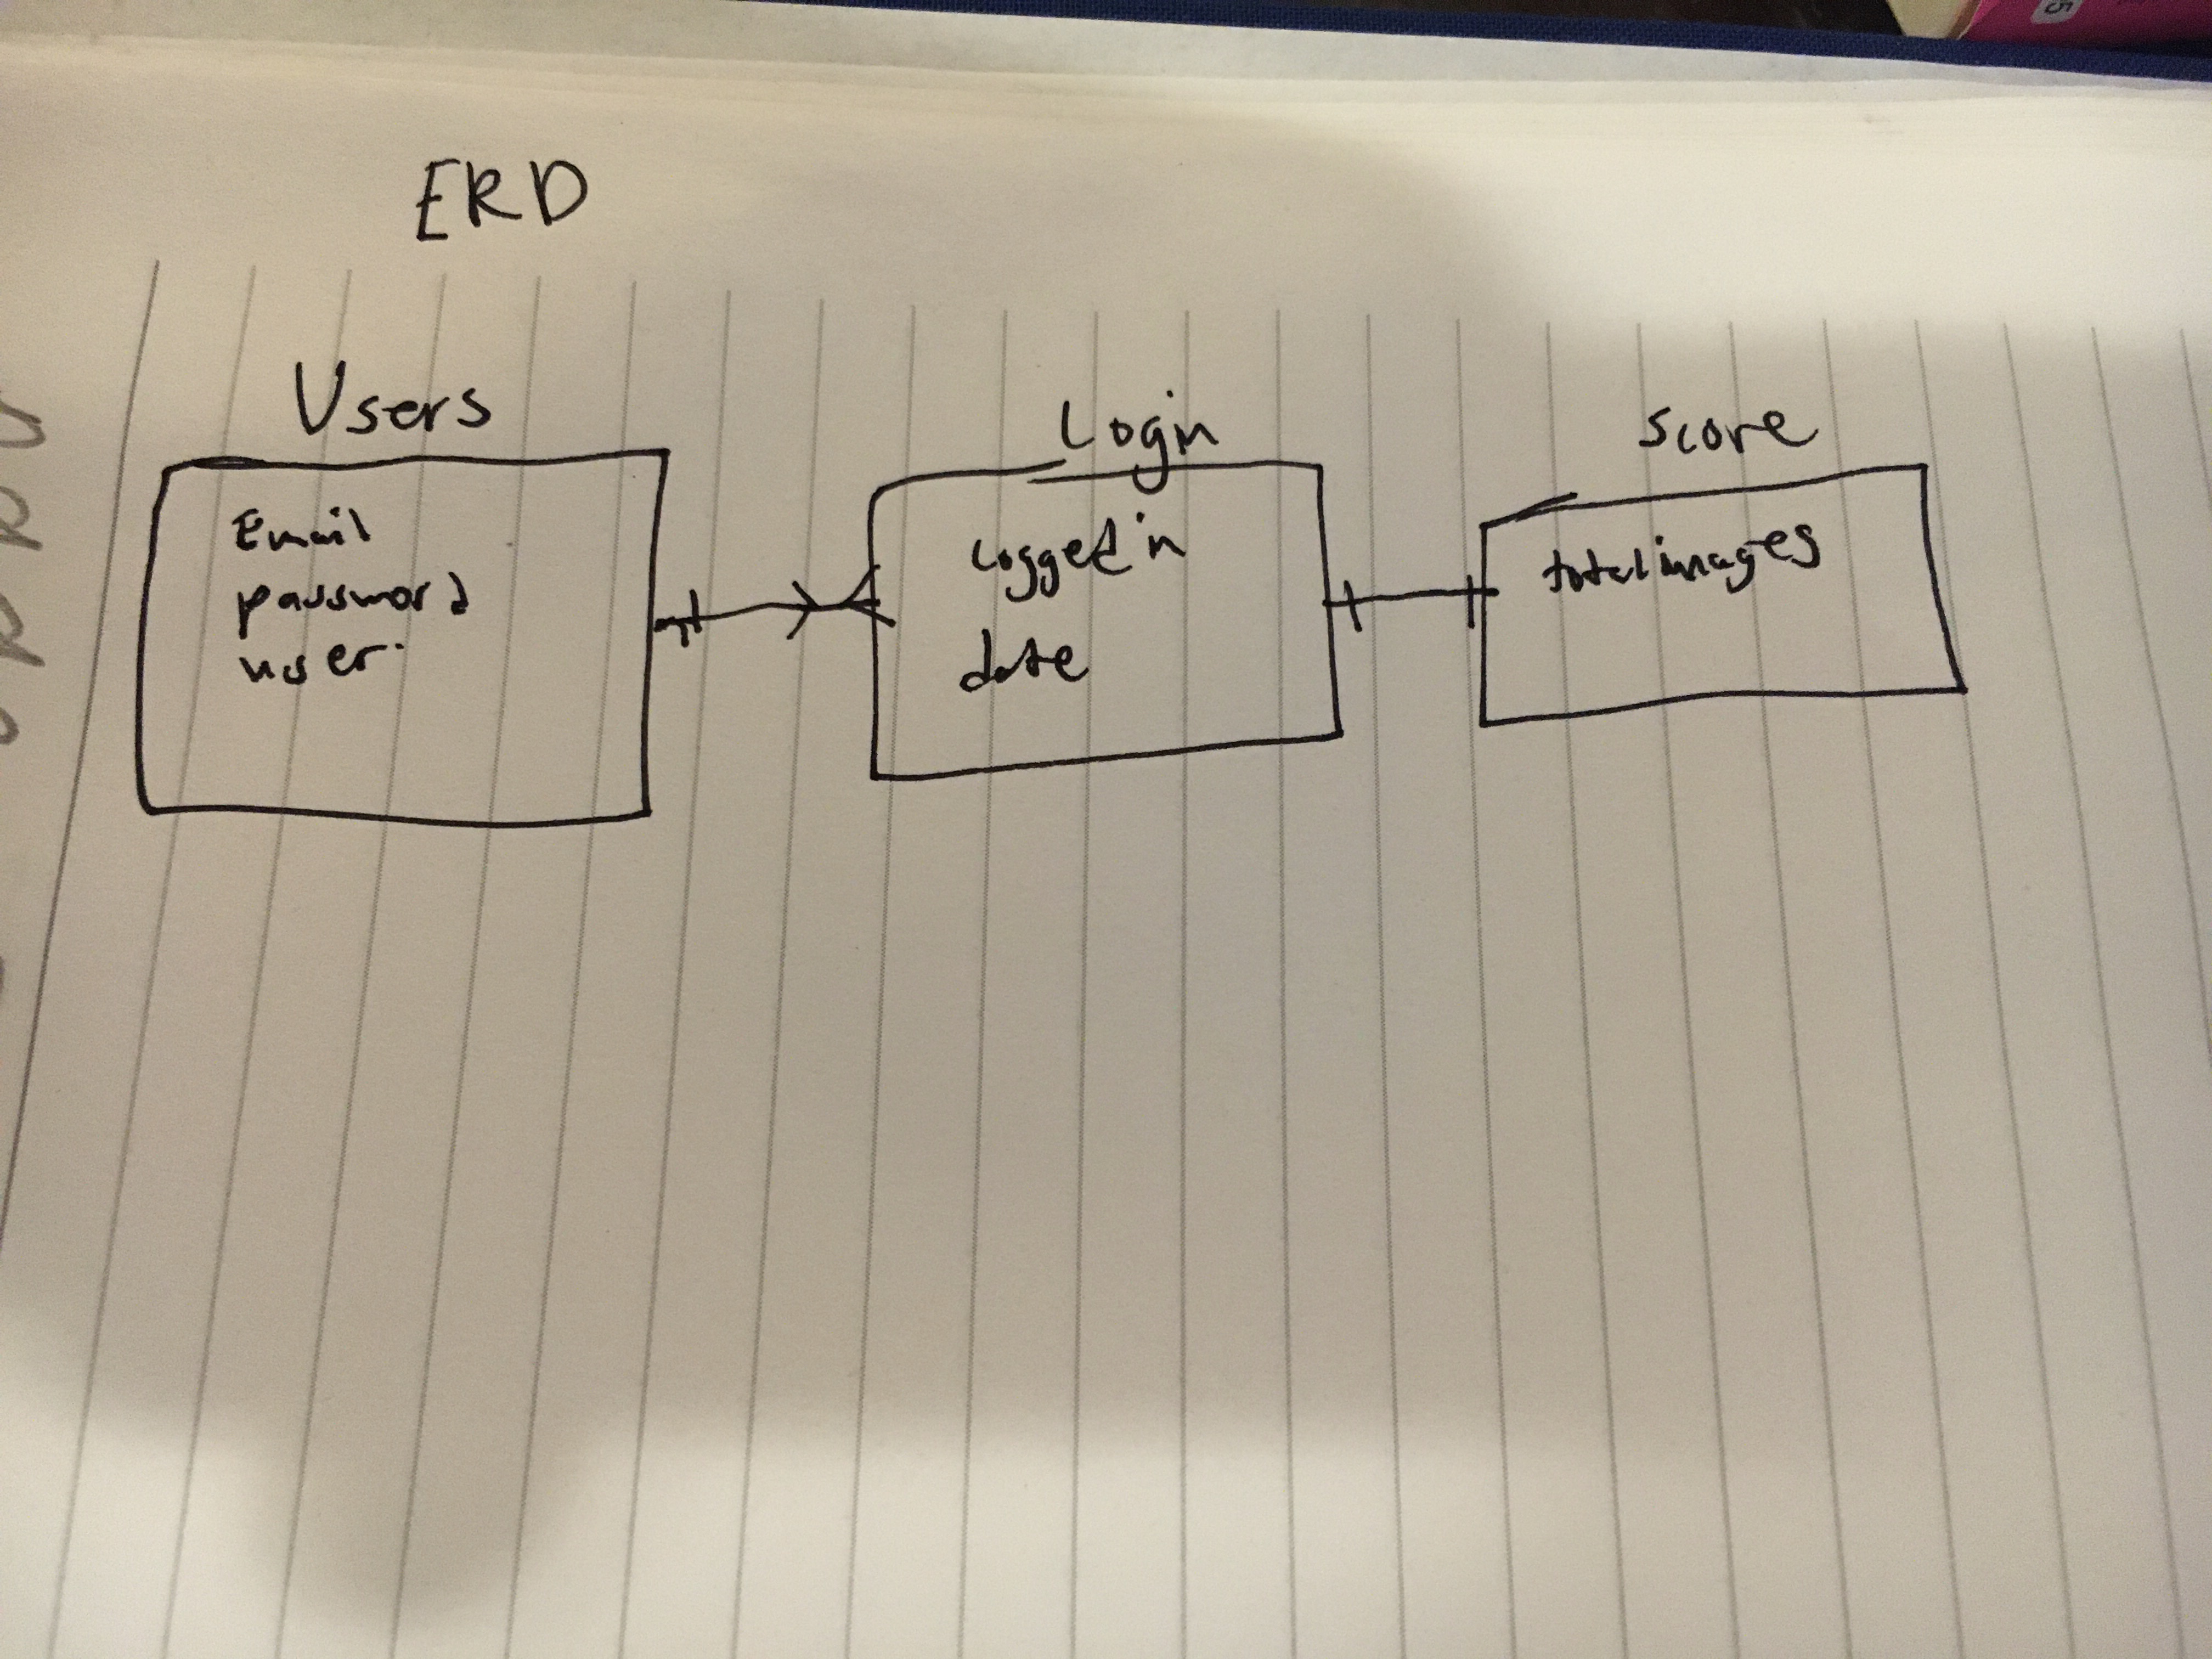 ERD
Users
Email
password
user
Login
Logged in
date
Score
total images